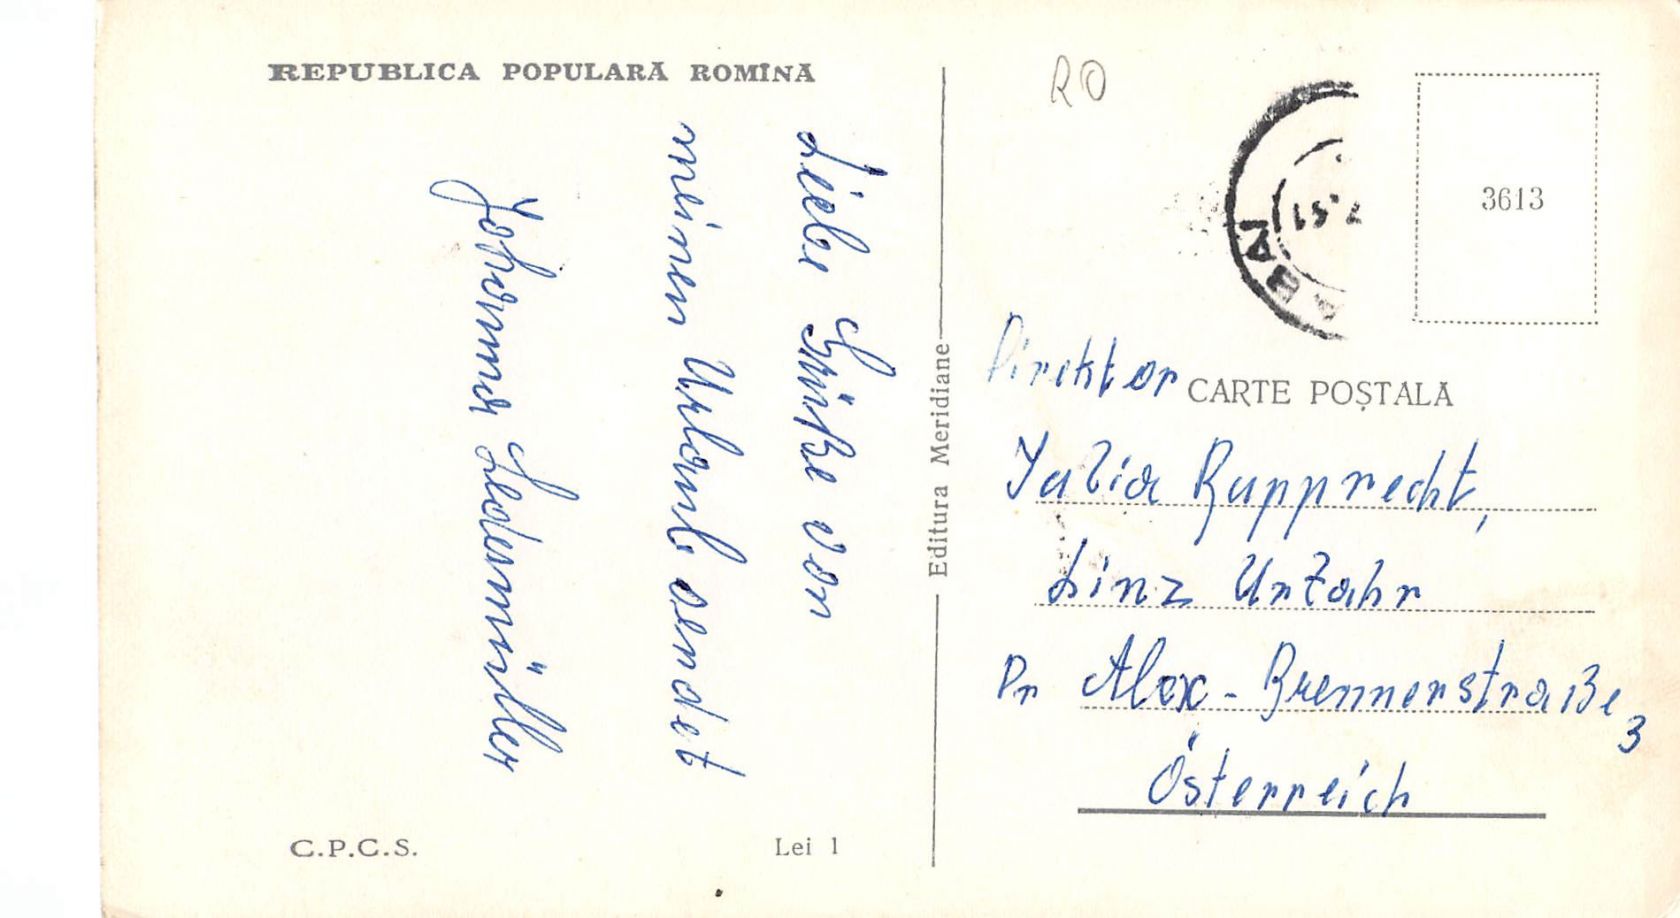 REPUBLICA POPULARĂ ROMÎNĂ
Liebe Grüße von
meinem Urlaub sendet
Johanna Ledermüller
C.P.C.S.
Lei 1
Editura Meridiane
RO
3613
Direktor
CARTE POȘTALĂ
Julia Rupprecht,
Linz Urfahr
Dr Alex-Brennerstraße
3
Österreich